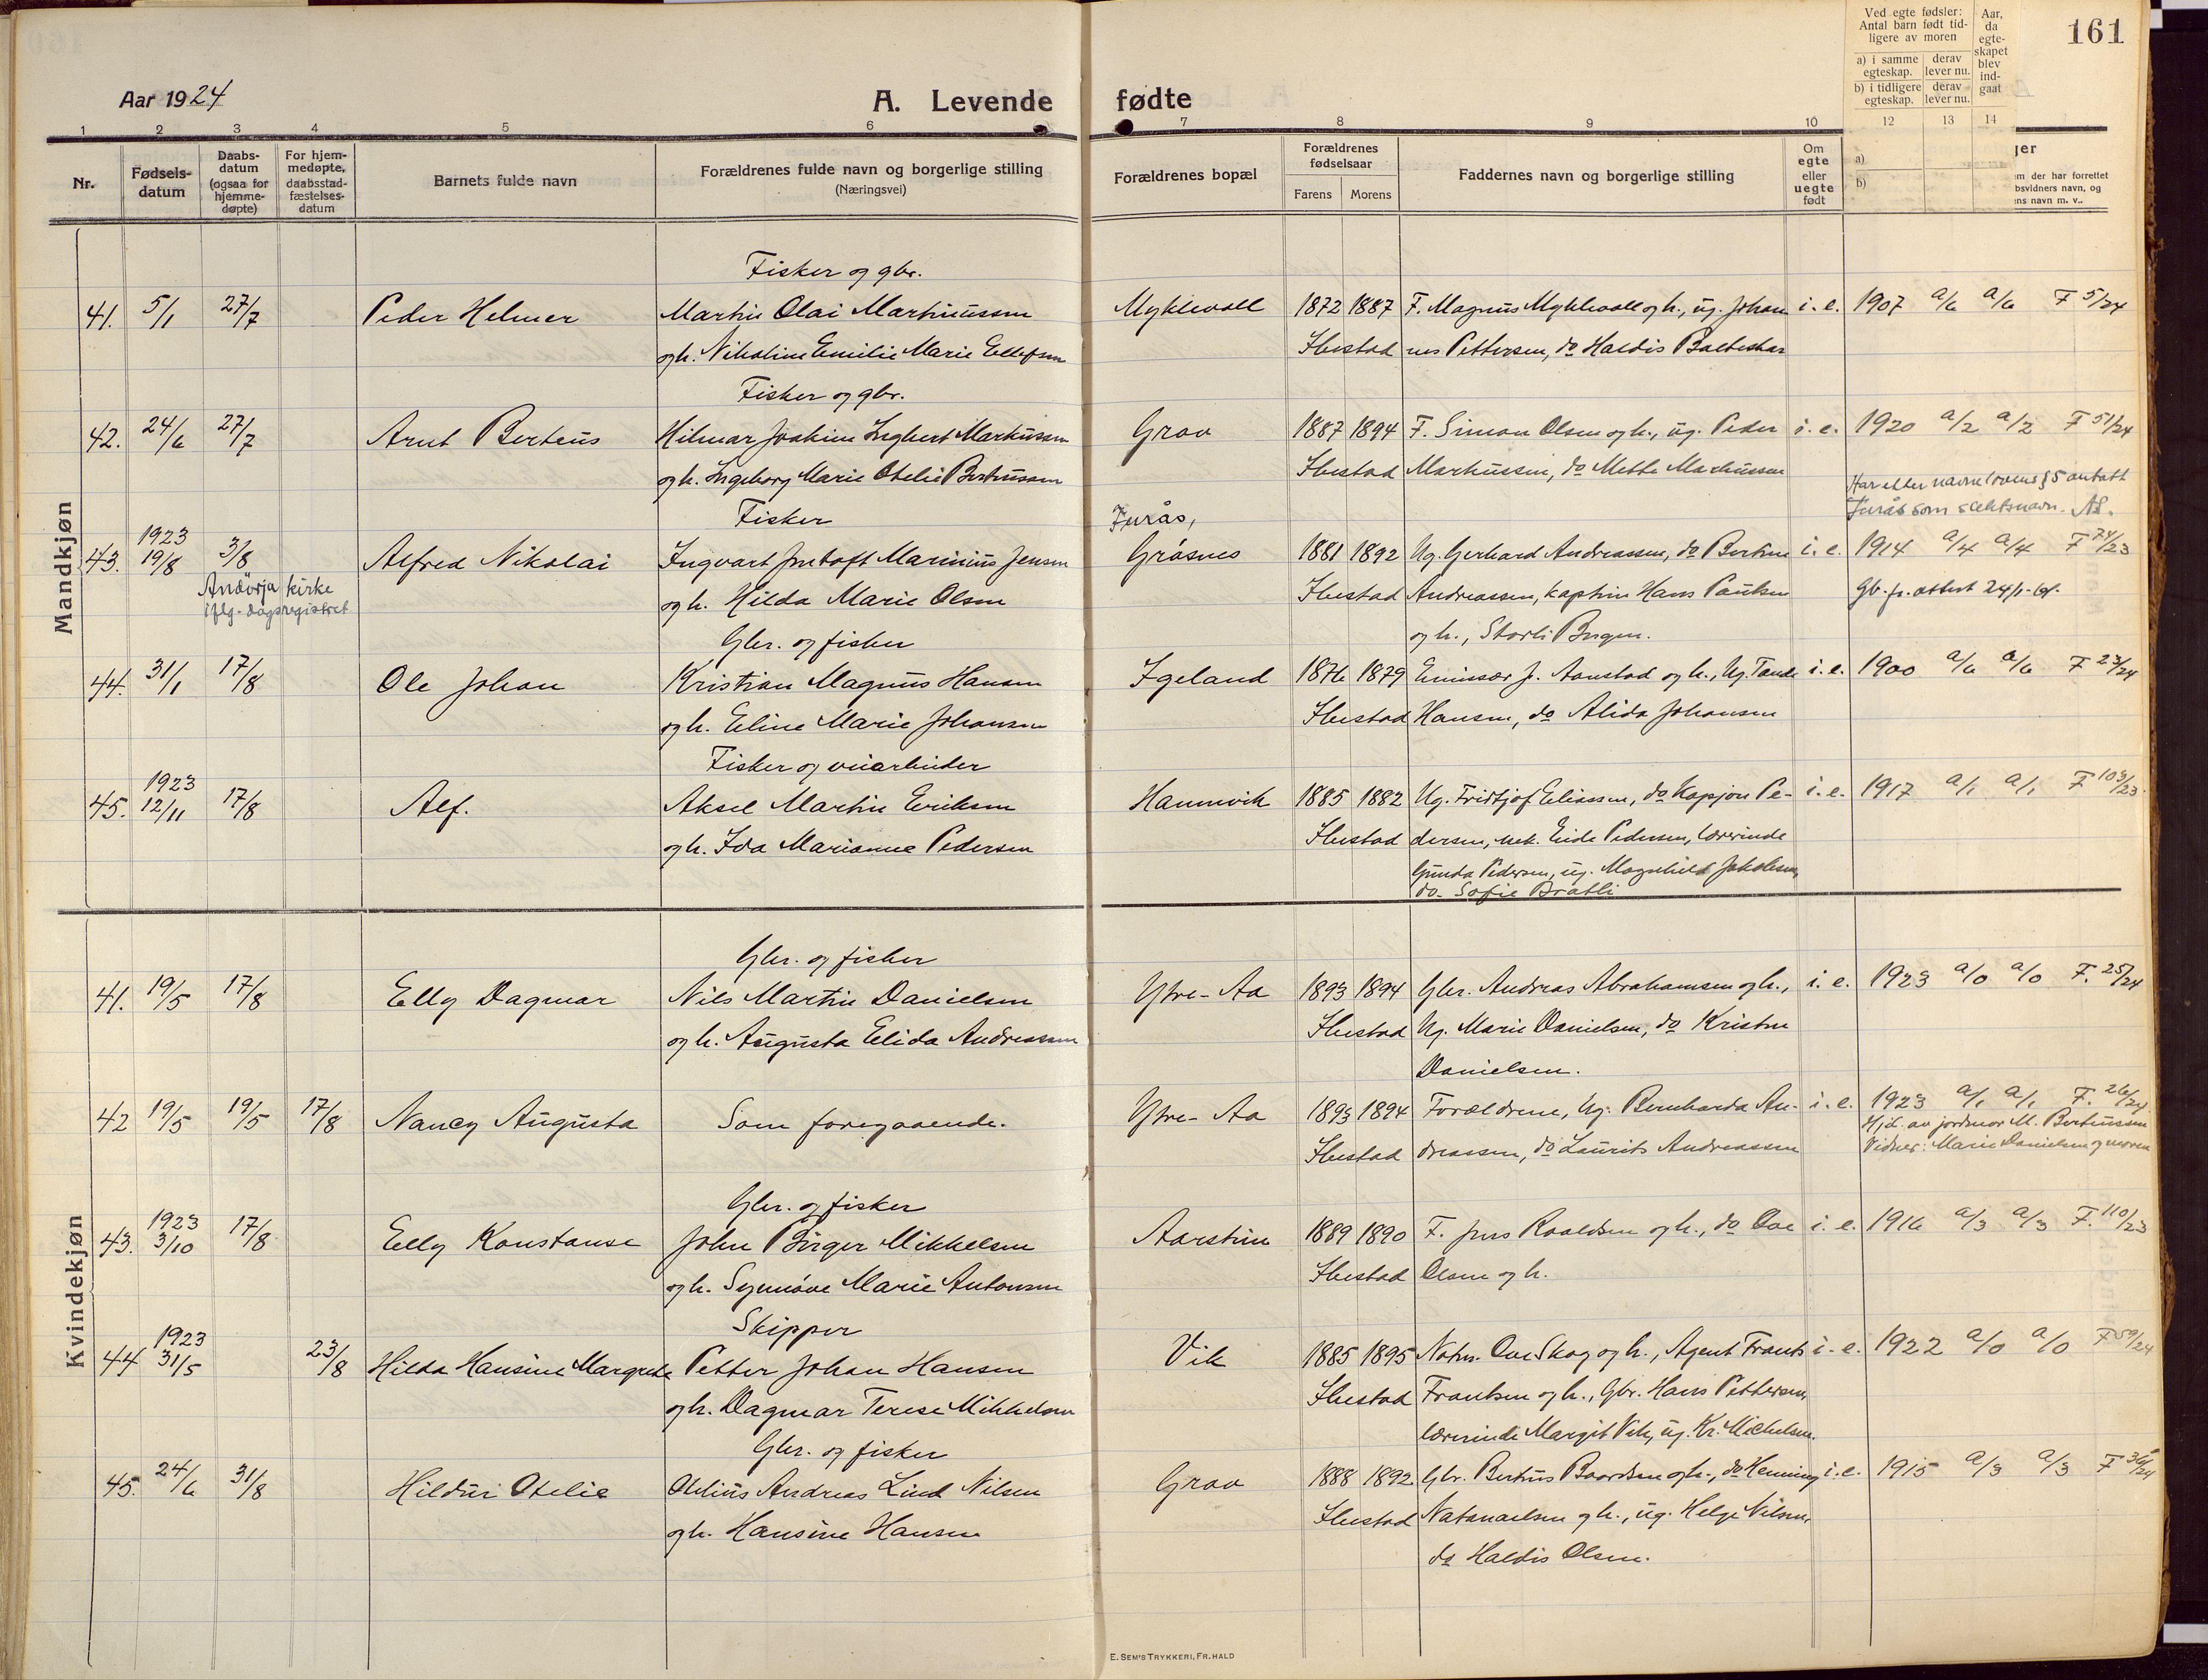 161
Aar 1924
A. Levende fødte
Ved egte fødsler: Antal barn født tidligere av moren
a) i samme egteskap. derav lever nu.
b) i tidligere egteskap. derav lever nu.
Aar, da egteskapet blev indgaat
1 2 3 4 5 6 7 8 9 10 12 13 14
Nr.
Fødsels-datum
Daabs-datum (ogsaa for hjemme-døpte)
For hjem-medøpte, daabsstad-fæstelses-datum
Barnets fulde navn
Forældrenes fulde navn og borgerlige stilling
(Næringsvei)
Forældrenes bopæl
Forældrenes fødselsaar
Farens Morens
Faddernes navn og borgerlige stilling
Om egte eller uegte født
a)
b)
Mandkjøn
Fisker og gbr.
41. 5/1 27/7 Peder Helmer Martin Olai Martinussen Myklevoll 1872 1887 F. Magnus Myklevoll og h., ug. Johan i. e. 1907 a/6 a/6 F 5/24
og h. Nikoline Emilie Marie Ellefsen Ibestad nes Pettersen, do Haldis Balteskar
Fisker og gbr.
42. 24/6 27/7 Arnt Berteus Hilmar Joakim Ingbert Markussen Grov 1887 1894 F. Simon Olsen og h., ug. Peder i. e. 1920 a/2 a/2 F 51/24
og h. Ingeborg Marie Otelie Berteussen Ibestad Markussen, do Mette Markussen
Har etter navnelovens § 5 antatt
Furås som slektsnavn. AS.
Fisker Furås,
43. 1923 19/8 3/8 Alfred Nikolai Ingvart Jentoft Marinius Jensen Gråsnes 1881 1892 Ug. Gerhard Andreassen, do Bertine i. e. 1914 a/4 a/4 F 74/23
Andørja kirke
iflg. dagsregistret
og h. Hilda Marie Olsen Ibestad Andreassen, kaptein Hans Paulsen
Gb. fr. attest 24/1-61.
og h., Storli Bergen.
Gbr. og fisker
44. 31/1 17/8 Ole Johan Kristian Magnus Hansen Igeland 1876 1879 Emissær J. Aanstad og h., Ug. Tande i. e. 1900 a/6 a/6 F 23/24
og h. Eline Marie Johansen Ibestad Hansen, do Alida Johansen
Fisker og veiarbeider
45. 1923 12/11 17/8 Alf. Aksel Martin Eriksen Hamnvik 1885 1882 Ug. Fridtjof Eliassen, do Kasjon Pe- i. e. 1917 a/1 a/1 F. 103/23
og h. Ida Marianne Pedersen Ibestad dersen, enk. Eide Pedersen, lærerinde
Gunda Pedersen, ug. Magnhild Jakobsen,
do. Sofie Bratli
Kvindekjøn
Gbr. og fisker
41. 19/5 17/8 Elly Dagmar Nils Martin Danielsen Ytre-Aa 1893 1894 Gbr. Andreas Abrahamsen og h., i. e. 1923 a/0 a/0 F. 25/24
og h. Augusta Elida Andreassen Ibestad Ug. Marie Danielsen, do Kristen
Danielsen.
42 19/5 19/5 17/8 Nancy Augusta Som foregaaende. Ytre-Aa 1893 1894 Forældrene, Ug. Bernharda An- i. e. 1923 a/1 a/1 F. 26/24
Ibestad dreassen, do Laurits Andreassen
Hj.d. av jordmor M. Berteussen
Vidner: Marie Danielsen og moren
Gbr. og fisker
43. 1923 3/10 17/8 Elly Konstanse John Birger Mikkelsen Aarstein 1889 1890 F. Jens Roaldsen og h., do Ove i. e. 1916 a/3 a/3 F. 110/23
og h. Synnøve Marie Antonsen Ibestad Olsen og h.
Skipper
44 1923 31/5 23/8 Hilda Hansine Margrethe Petter Johan Hansen Vik 1885 1895 Notm. Ove Skog og h., Agent Frants i. e. 1922 a/0 a/0 F 59/24
og h. Dagmar Terese Mikkelsen Ibestad Frantsen og h., Gbr. Hans Pettersen,
lærerinde Margit Vik, ug. Kr. Michelsen.
Gbr. og fisker
45. 24/6 31/8 Hildur Otelie Otelius Andreas Lind Nilsen Grov 1888 1892 Gbr. Berteus Baardsen og h., do Henning i. e. 1915 a/3 a/3 F 36/24
og h. Hansine Hansen Ibestad Natanaelsen og h., ug. Helge Nilsen,
do Haldis Olsen.
E. SEM'S TRYKKERI, FR.HALD